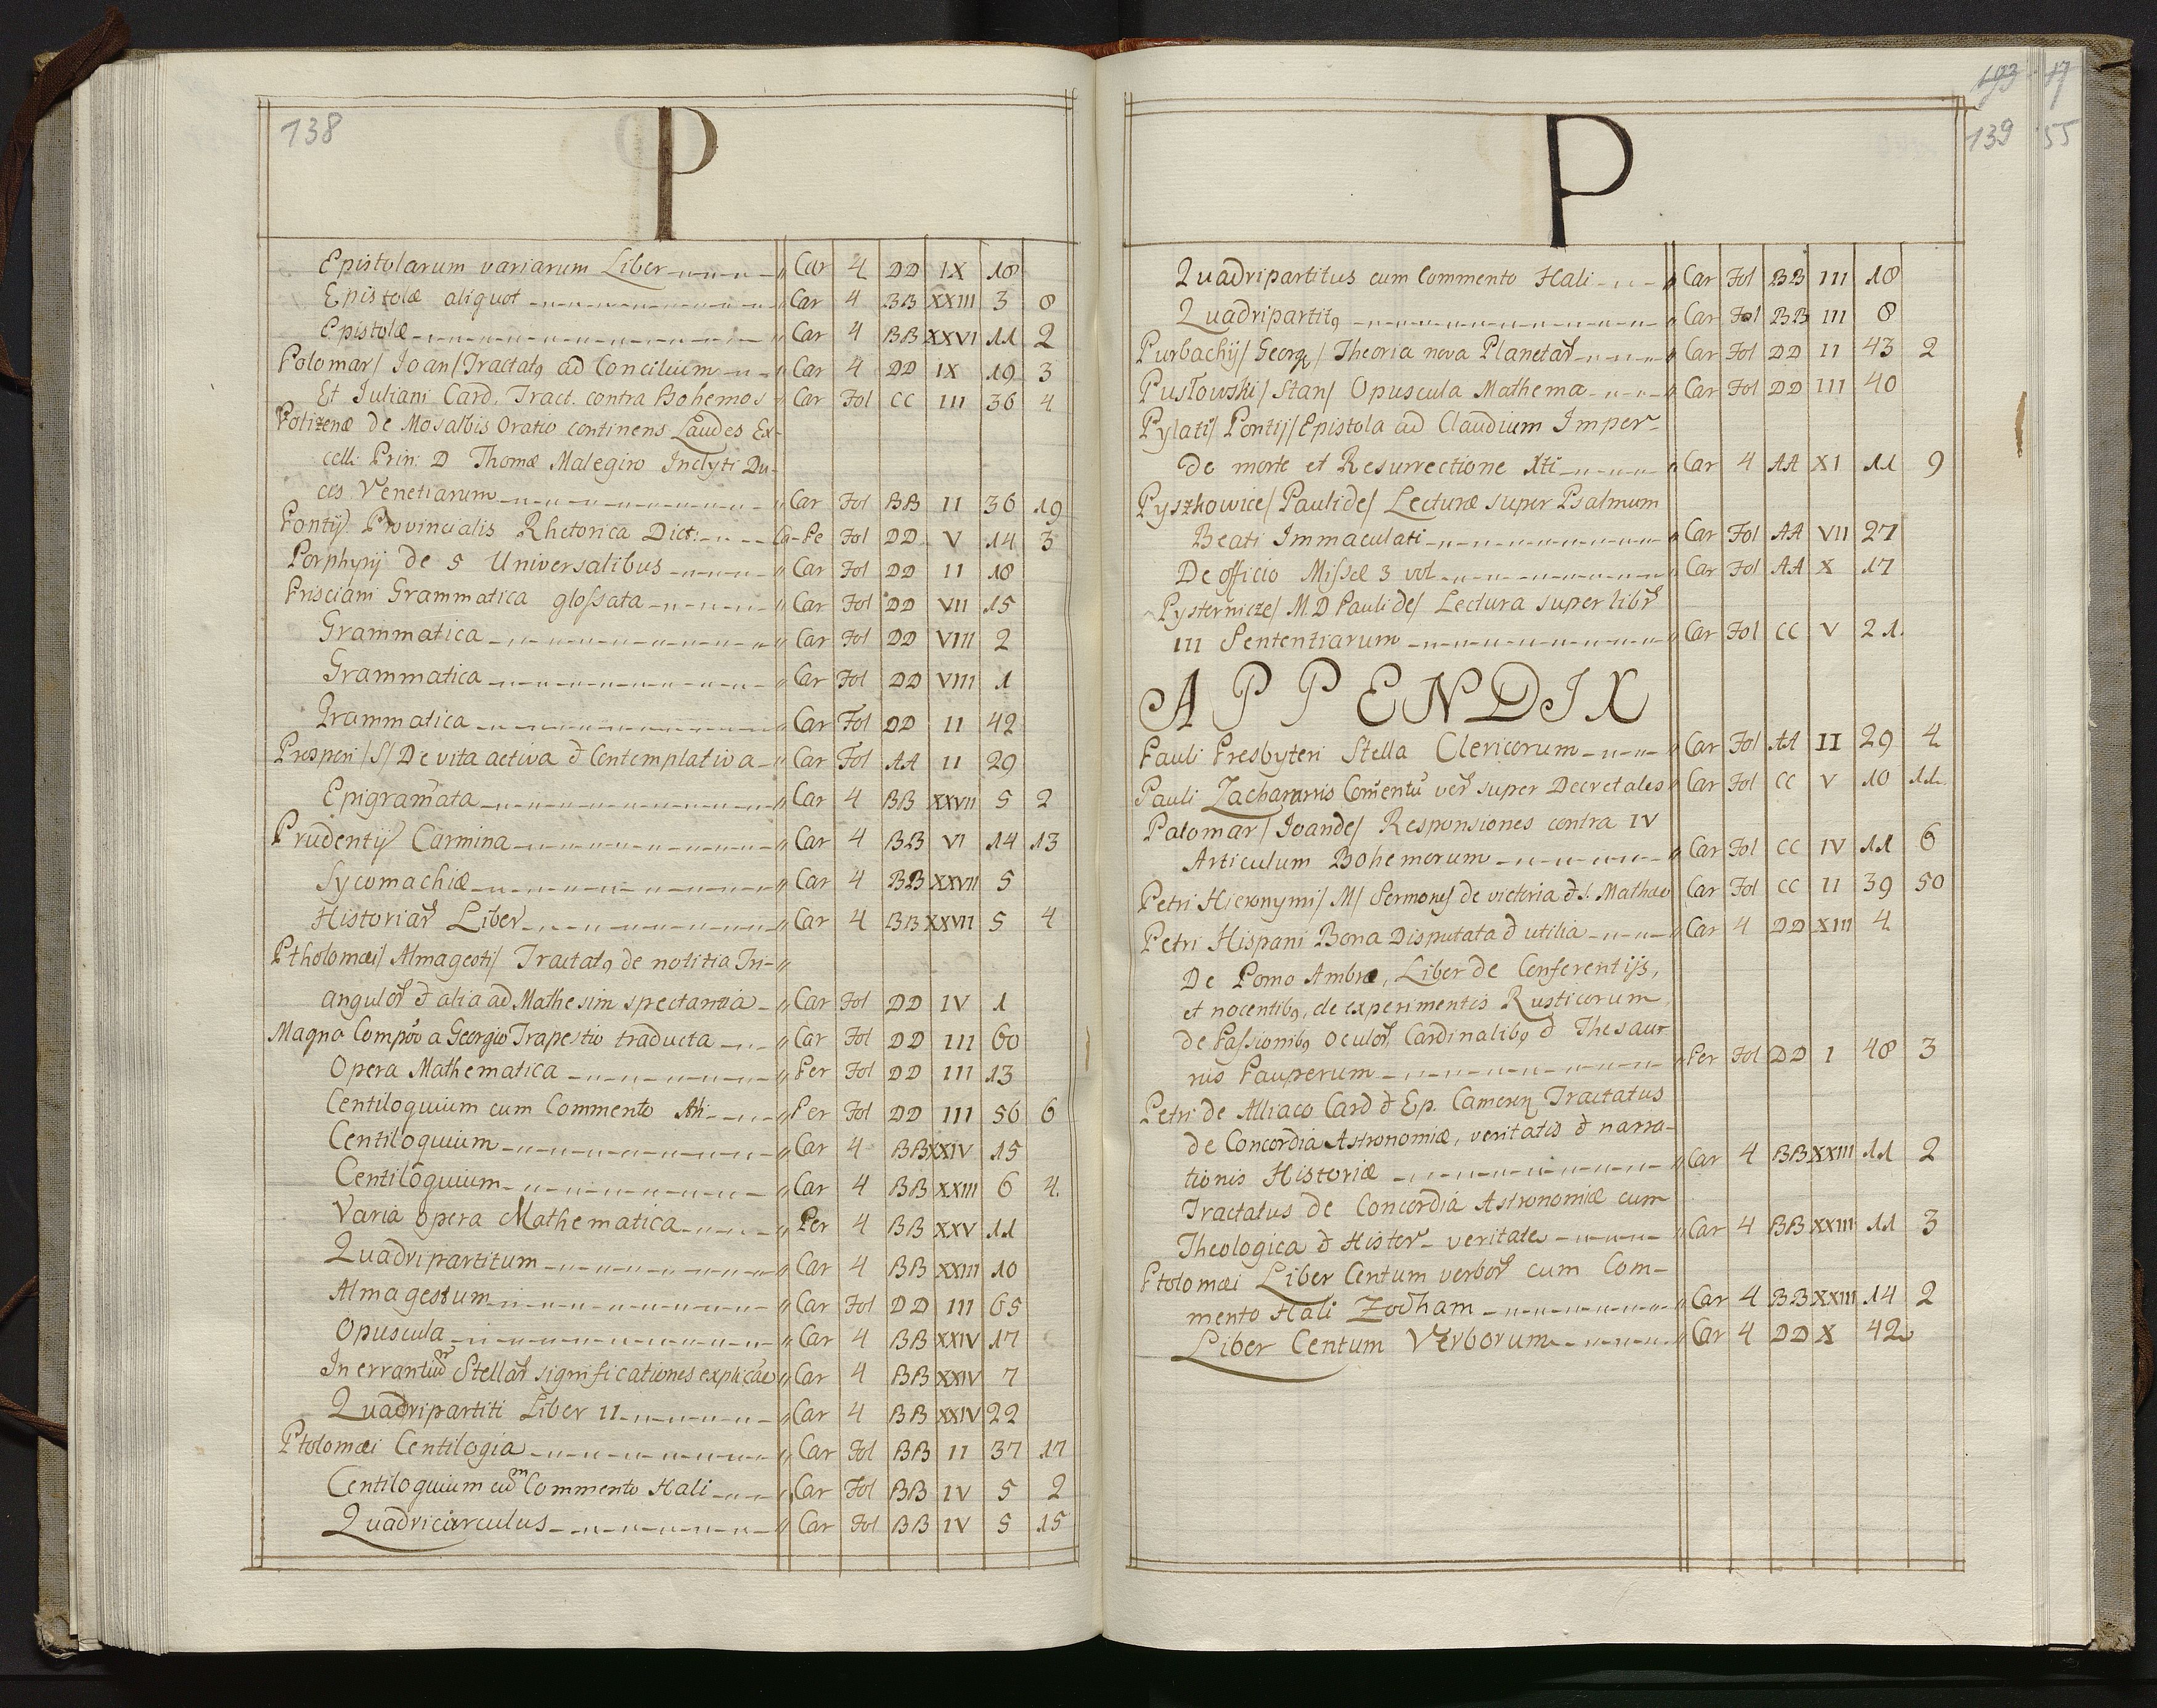 138
P
Epistolarum variarum Liber Car 4 DD IX 18
Epistolæ aliquot Car 4 BB XXIII 3 8
Epistolæ Car 4 BB XXVI 11 2
Polomar/ Joan/ Tractatꝯ ad Concilium Car 4 DD IX 19 3
Et Juliani Card. Tract. contra Bohemos Car Fol CC III 36 4
de Mosalbis Oratio continens Laudes Ex-
cell: Prin: D Thomæ Malegiro Inclyti Du-
cis Venetiarum Car Fol BB II 36 19
Pontij Provincialis Rhetorica Dict: Ca-Pe Fol DD V 14 3
Porphyrij de 5 Universalibus Car Fol DD II 18
Prisciani Grammatica glossata Car Fol DD VII 15
Grammatica Car Fol DD VIII 2
Grammatica Car Fol DD VIII 1
Grammatica Car Fol DD II 42
Prosperi /S/ De vita activa & Contemplativa Car Fol AA II 29
Epigram̃ata Car 4 BB XXVII 5 2
Prudentij Carmina Car 4 BB VI 14 13
Sycomachiæ Car 4 BB XXVII 5
Historiaꝝ Liber Car 4 BB XXVII 5 4
Ptholomæi/ Almageoti/ Tractatꝯ de notitia Tri-
anguloꝝ & alia ad Mathesim spectantia Car Fol DD IV 1
Magna Compõo a Georgio Trapestio traducta Car Fol DD III 60
Opera Mathematica Per Fol DD III 13
Centiloquium cum Commento Ali Per Fol DD III 56 6
Centiloquium Car 4 BB XXIV 15
Centiloquium Car 4 BB XXIII 6 4
Varia opera Mathematica Per 4 BB XXV 11
Quadripartitum Car 4 BB XXIII 10
Almagestum Car Fol DD III 65
Opuscula Car 4 BB XXIV 17
In errantiũ Stellaꝝ significationes explicãe Car 4 BB XXIV 7
Quadripartiti Liber II Car 4 BB XXIV 22
Ptolomæi Centilogia Car Fol BB II 37 17
Centiloquium cũ Commento Hali Car Fol BB IV 5 2
Quadricirculus Car Fol BB IV 5 15
193 17
139 55
P
Quadripartitus cum Commento Hali Car Fol BB III 18
Quadripartitꝯ Car Fol BB III 8
Purbachij/ Georg/ Theoria nova Planetaꝝ Car Fol DD II 43 2
Pusłowski/ Stan/ Opuscula Mathema Car Fol DD III 40
Pylati/ Pontij/ Epistola ad Claudium Imper
de morte et Resurrectione Xti Car 4 AA XI 11 9
Pyszkowice/ Pauli de/ Lecturæ super Psalmum
Beati Immaculati Car Fol AA VII 27
De officio Missæ 3 vol Car Fol AA X 17
Pysternicze/ M.D Pauli de/ Lectura super libꝝ
III Sententiarum Car Fol CC V 21.
APPENDIX
Pauli Presbyteri Stella Clericorum Car Fol AA II 29 4
Pauli Com̃entũ veꝝ super Decretales Car Fol CC V 10 11.
Palomar/ Joan de/ Responsiones contra IV
Articulum Bohemorum Car Fol CC IV 11 6
Petri Hieronymi/ M/ Sermones de victoria & S. Mathæo Car Fol CC II 39 50
Petri Hispani Bona Disputata & utilia Car 4 DD XIII 4
De Pomo Ambræ, Liber de Conferentijs,
et nocentibꝯ, de experimentis Rusticorum,
de Passionibꝯ Oculoꝝ, Cardinalibꝯ & Thesaur
rus Pauperum Per Fol DD I 48 3
Petri de Alliaco Card & Ep. Cameren Tractatus
de Concordia Astronomiæ, veritatis & narra-
tionis Historiæ Car 4 BB XXIII 11 2
Tractatus de Concordia Astronomiæ cum
Theologica & Histor veritate Car 4 BB XXIII 11 3
Ptolomæi Liber Centum verboꝝ cum Com-
mento Hali Zodham Car 4 BB XXIII 14 2
Liber Centum Verborum Car 4 DD X 42